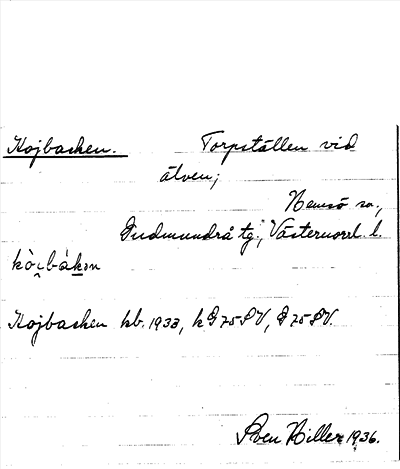 Kojbacken. Torpställen vid
älven;
Hemsö sn,
Gudmundrå tg., Västernorrl. l.
kòi̯bákən
Kojbacken kb. 1933, k G 75 SV, G 75 SV.
Sven Hiller 1936.